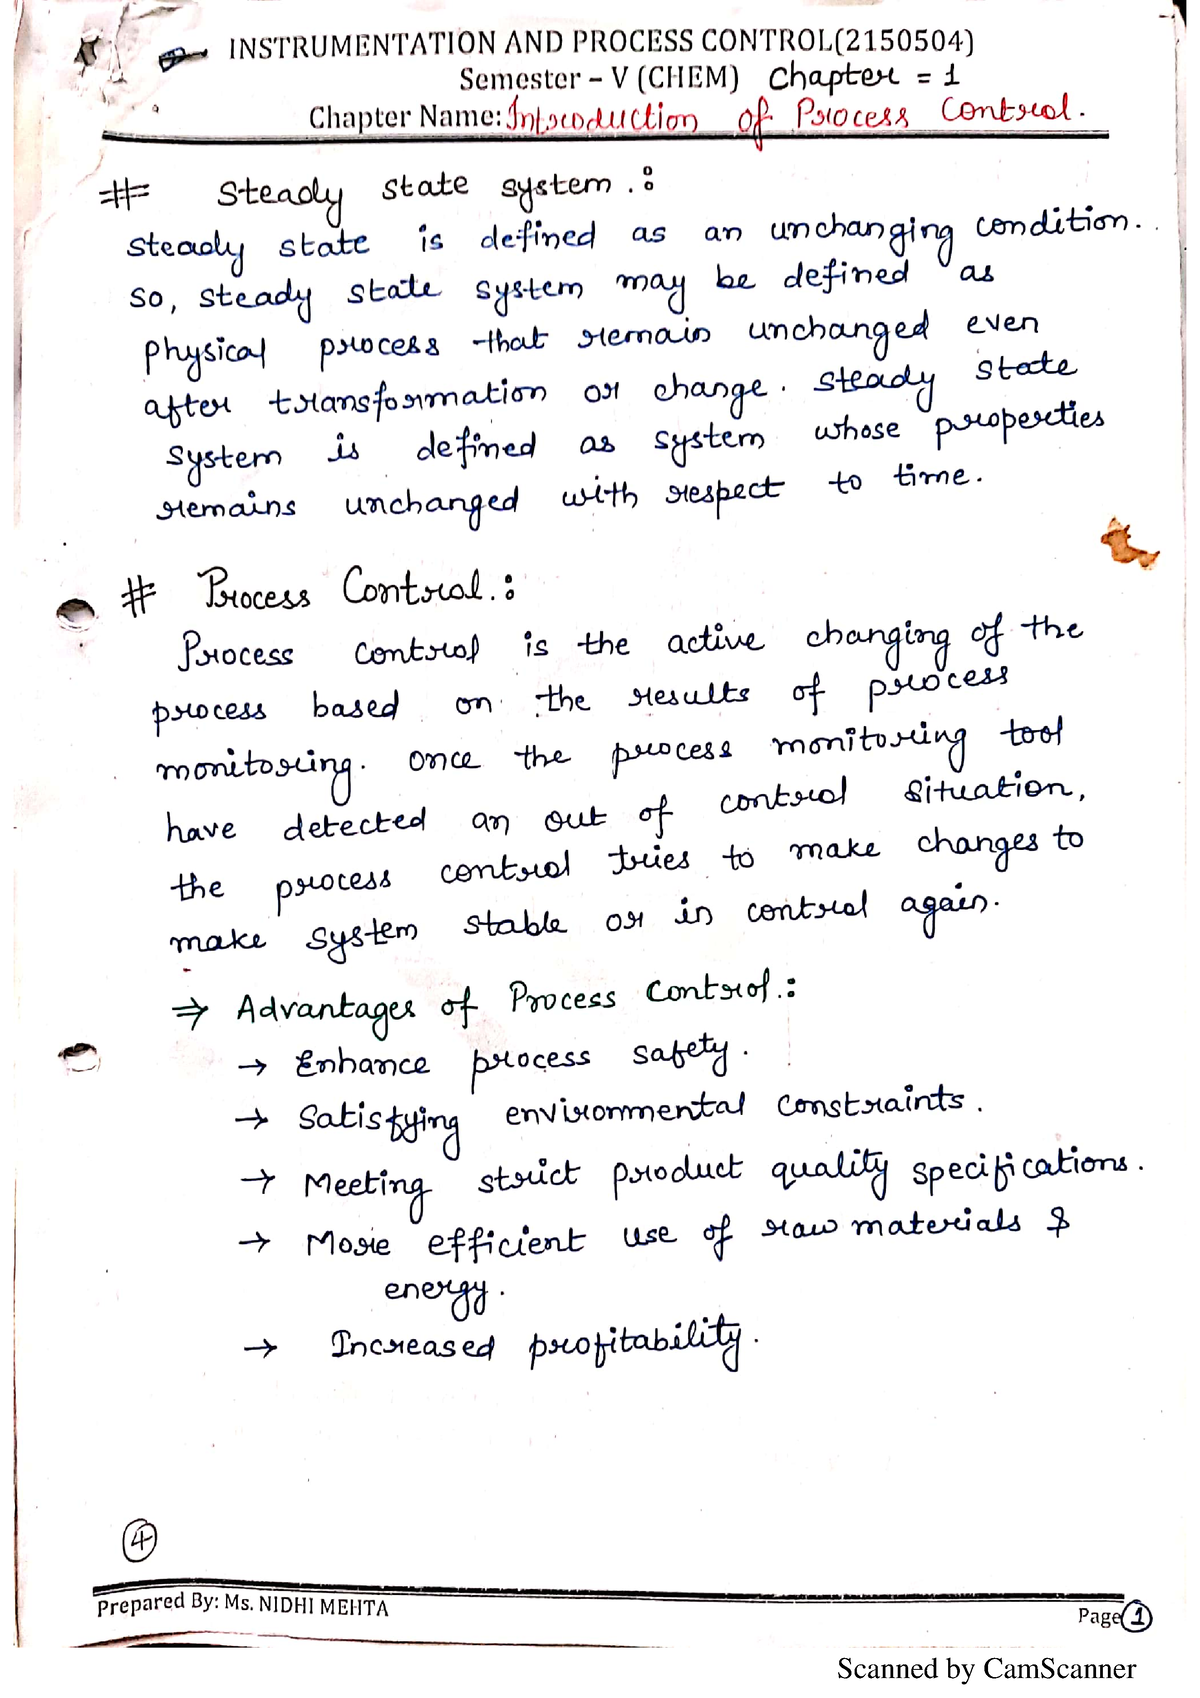 INSTRUMENTATION AND PROCESS CONTROL(2150504)
Semester – V (CHEM) Chapter = 1
Chapter Name: Introduction of Process Control.
# Steady state system.:
steady state is defined as an unchanging condition.
so, steady state system may be defined as
physical process that remain unchanged even
after transformation or change. steady state
system is defined as system whose properties
remains unchanged with respect to time.
# Process Control.:
Process control is the active changing of the
process based on the results of process
monitoring. once the process monitoring tool
have detected an out of control situation,
the process control tries to make changes to
make system stable or in control again.
⇒ Advantages of Process Control.:
→ Enhance process safety.
→ Satisfying environmental constraints.
→ Meeting strict product quality specifications.
→ More efficient use of raw materials &
energy.
→ Increased profitability.
4
Prepared By: Ms. NIDHI MEHTA
Page 1
Scanned by CamScanner